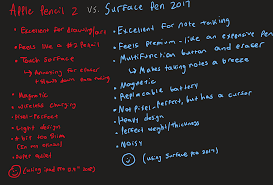 Apple Pencil 2 vs. Surface Pen 2017
Excellent for drawing/
Feels like a #2 Pencil
Touch Surface
Amazing for eraser
Magnetic
wireless charging
Pixel-Perfect
Light design
A bit too thin
Palm Reject
(using iPad Pro
Excellent for Note taking
Feels premium - like an expensive pen
Multifunction button and eraser
Makes taking notes a breeze
Magnetic
Replacable battery
Not pixel-perfect, but has a cursor
Heavy design
Perfect weight/thickness
Noisy
(using Surface Pro 2017)